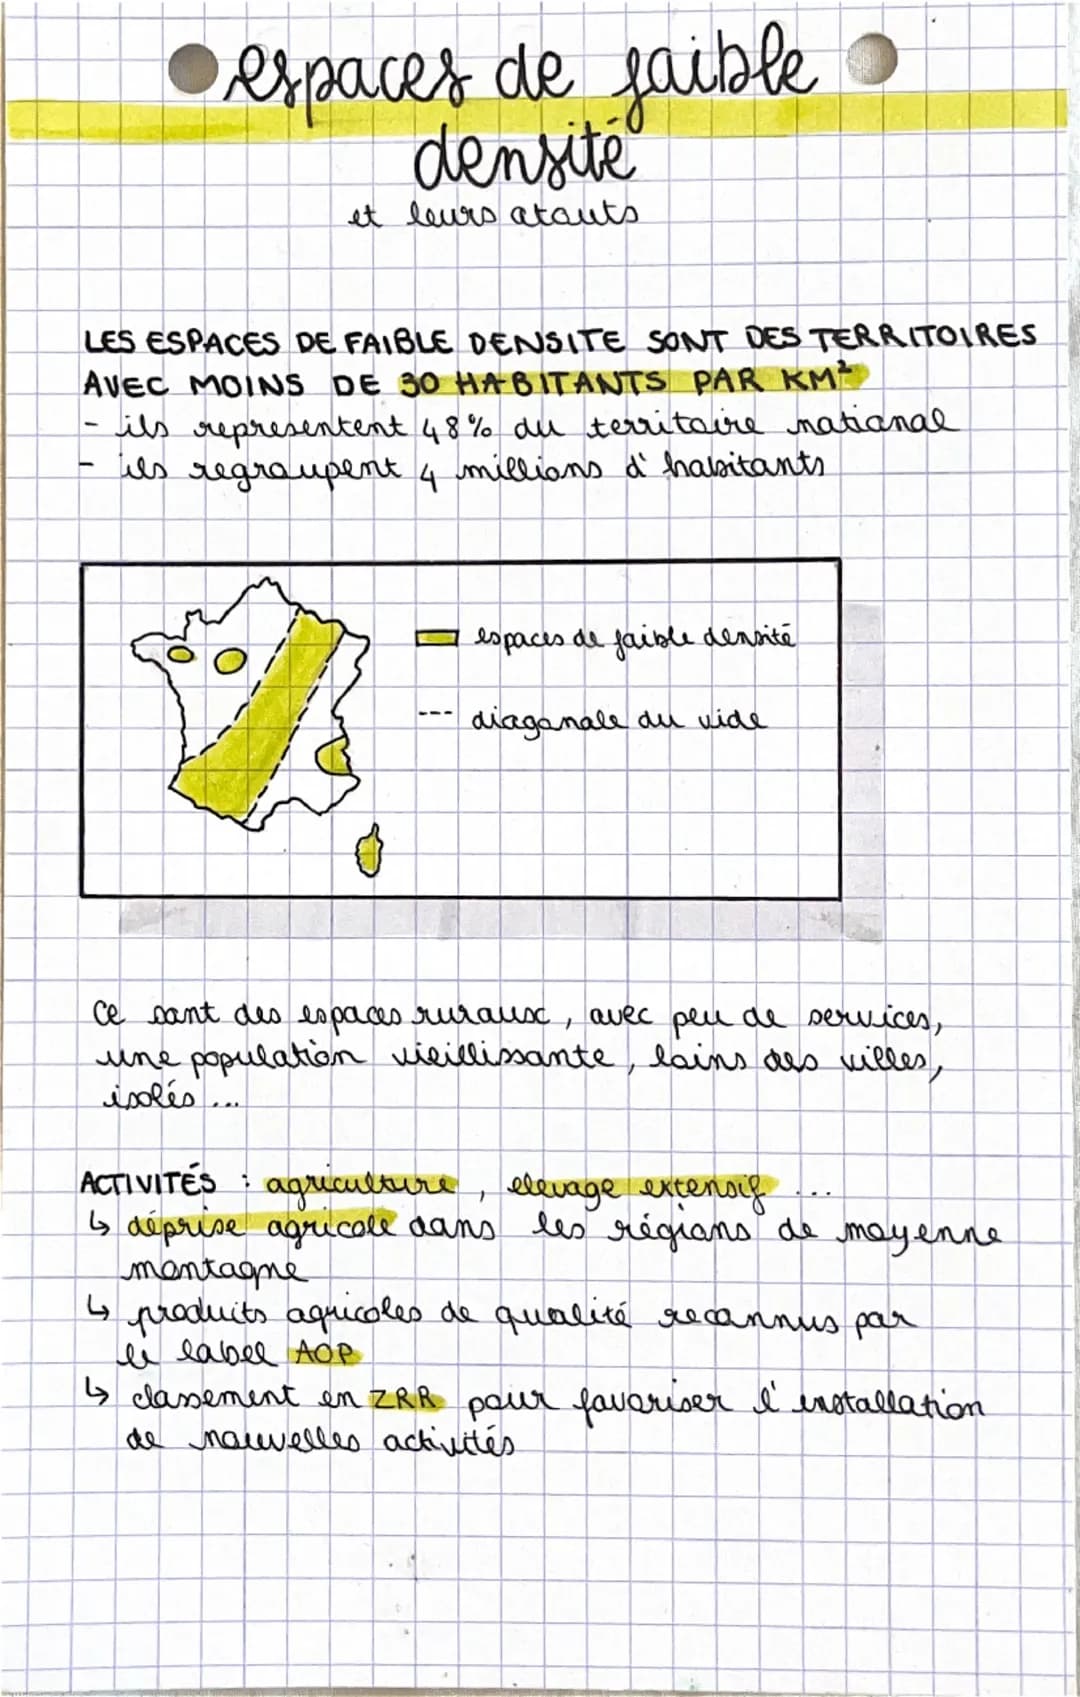 espaces de faible
densité
et leurs atouts
LES ESPACES DE FAIBLE DENSITE SONT DES TERRITOIRES
AVEC MOINS DE 30 HABITANTS PAR KM²
- ils representent 48% du territoire national
- ils regroupent 4 millions d'habitants
espaces de faible densité
--- diagonale du vide
Ce sont des espaces ruraux, avec peu de services,
une population vieillissante, loins des villes,
isolés ...
ACTIVITÉS : agriculture, elevage extensif ...
↳ déprise agricole dans les régions de moyenne
montagne
↳ produits agricoles de qualité reconnus par
le label AOP
↳ classement en ZRR pour favoriser l'installation
de nouvelles activités